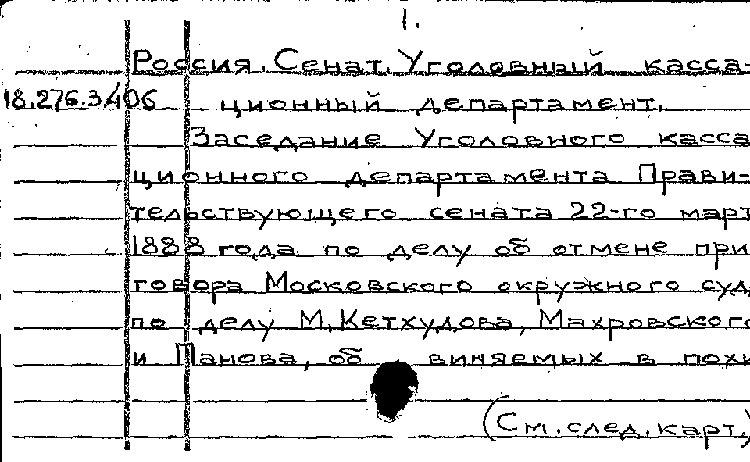 1.
Россия. Сенат. Уголовный касса-
18.276.3406 ционный департамент.
Заседание Уголовного касса
ционного департамента Прави-
тельствующего сената 22-го март
1888 года по делу об отмене при
говора Московского окружного суд
по делу М. Кетхудова, Махровского
и Панова, об виняемых в похи
(См. след. карт.)